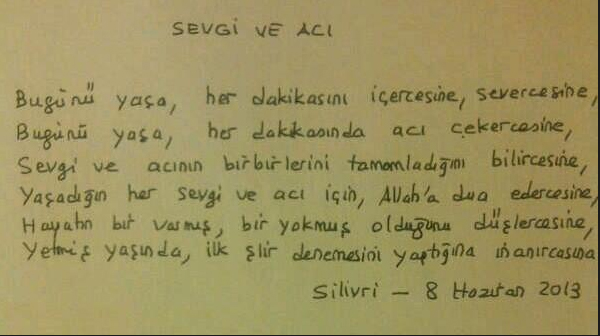 SEVGİ VE ACI
Bugünü yaşa, her dakikasını içercesine, severcesine,
Bugünü yaşa, her dakikasında acı çekercesine,
Sevgi ve acının birbirlerini tamamladığını bilircesine,
Yaşadığın her sevgi ve acı için, Allah'a dua edercesine,
Hayatın bir varmış, bir yokmuş olduğunu düşlercesine,
Yetmiş yaşında, ilk şiir denemesini yaptığına inanırcasına
Silivri - 8 Haziran 2013